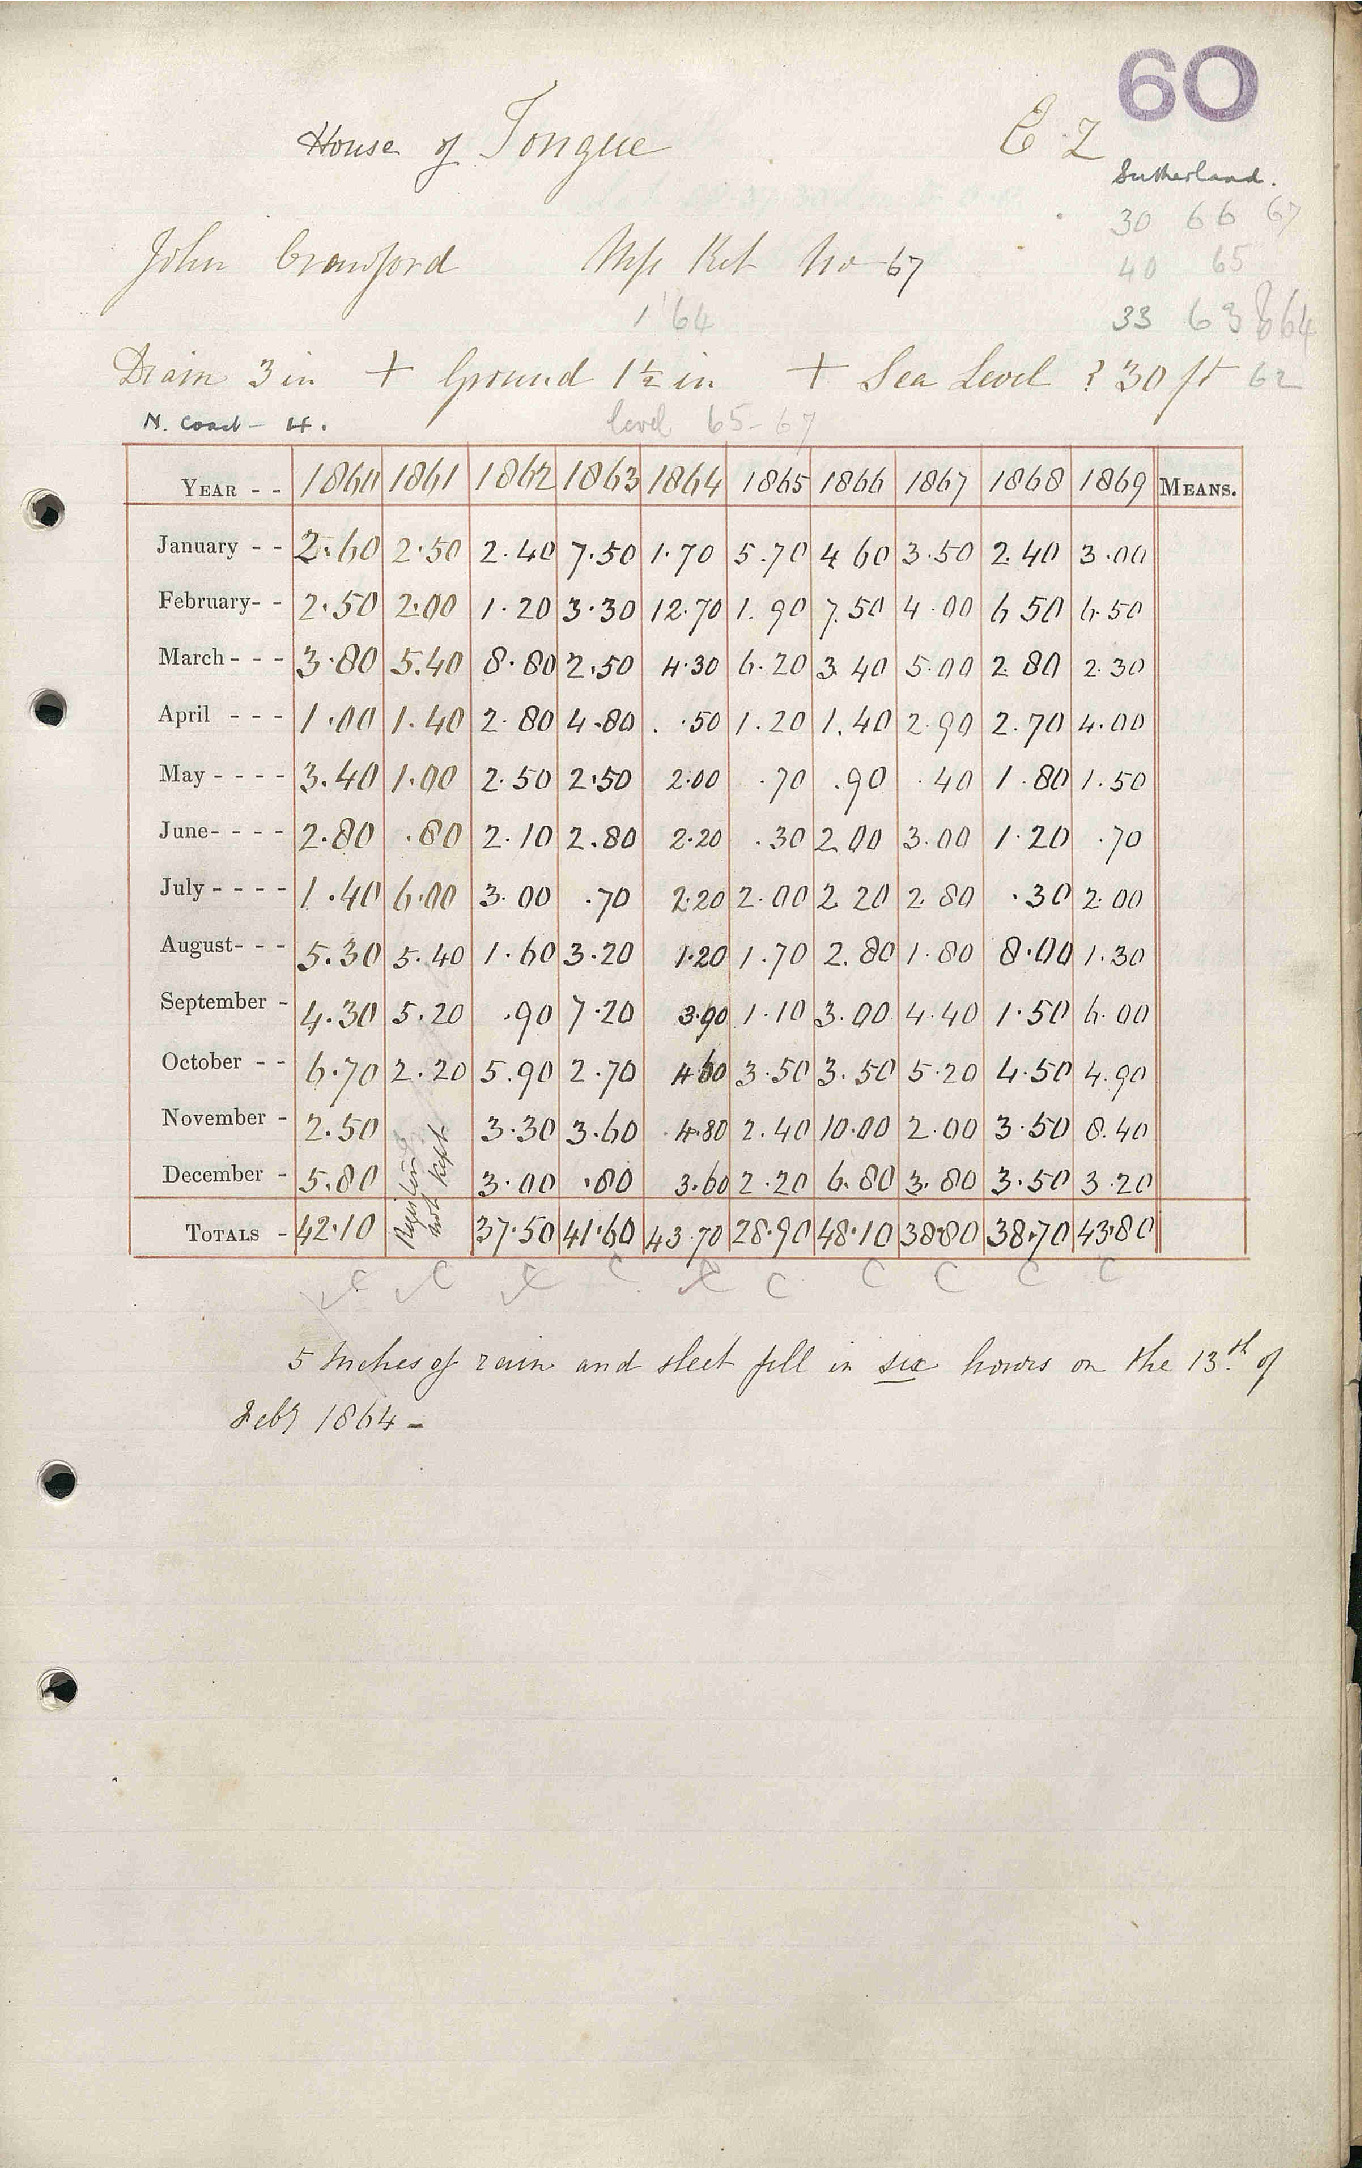 60
House of Tongue E Z
Sutherland.
30 66 67
John Crawford Mss Ret No 67
40 65
1'64
33 63 & 64
Diam 3 in + Ground 1½ in + Sea Level ? 30 ft 62
N. Coast - H.
level 65-67
YEAR - - 1860 1861 1862 1863 1864 1865 1866 1867 1868 1869 MEANS.
January - - 2.60 2.50 2.40 7.50 1.70 5.70 4 60 3.50 2.40 3.00
February- - 2.50 2.00 1.20 3.30 12.70 1.90 7.50 4.00 6 50 6.50
March - - - 3.80 5.40 8.80 2.50 4.30 6.20 3 40 5.00 2 80 2.30
April - - - 1.00 1.40 2.80 4.80 .50 1.20 1.40 2.90 2.70 4.00
May - - - - 3.40 1.00 2.50 2.50 2.00 .70 .90 .40 1.80 1.50
June- - - - 2.80 .80 2.10 2.80 2.20 .30 2.00 3.00 1.20 .70
July - - - - 1.40 6.00 3.00 .70 2.20 2.00 2 20 2.80 .30 2.00
August- - - 5.30 5.40 1.60 3.20 1.20 1.70 2.80 1.80 8.00 1.30
September - 4.30 5.20 .90 7.20 3.90 1.10 3.00 4.40 1.50 6.00
October - - 6.70 2.20 5.90 2.70 4.60 3.50 3.50 5.20 4.50 4.90
November - 2.50 3.30 3.60 4.80 2.40 10.00 2.00 3.50 8.40
December - 5.80 3.00 .80 3.60 2.20 6.80 3.80 3.50 3.20
Register
not Kept
TOTALS - 42.10 37.50 41.60 43.70 28.90 48.10 38.80 38.70 43.80
C C C C C C C C C C
5 Inches of rain and sleet fell in six hours on the 13.th of
Feby 1864 -